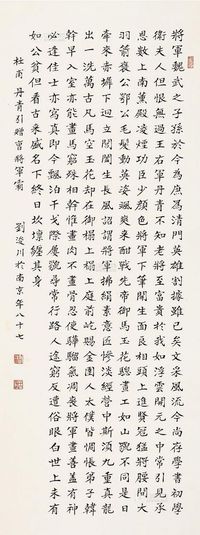 將軍魏武之子孫於今為庶為清門英雄割據雖已矣文采風流今尚存學書初學
衛夫人但恨無過王右軍丹青不知老將至富貴於我如浮雲開元之中常引見承
恩數上南薰殿凌煙功臣少顏色將軍下筆開生面良相頭上進賢冠猛將腰間大
羽箭褒公鄂公毛髮動英姿颯爽來酣戰先帝御馬玉花驄畫工如山貌不同是日
牽來赤墀下迥立閶闔生長風詔謂將軍拂絹素意匠慘淡經營中須臾九重真龍
出一洗萬古凡馬空玉花却在御榻上榻上庭前屹賜金圉人太僕皆惆悵弟子韓
幹早入室亦能畫馬窮殊相幹惟畫肉不畫骨忍使驊騮氣凋喪將軍畫善蓋有神
必逢佳士亦寫真即今飄泊干戈際屢貌尋常行路人途窮反遭俗眼白世上未有
如公貧但看古來盛名下終日坎壈纏其身
杜甫 丹青引贈曹將軍霸 劉浚川於南京年八十七